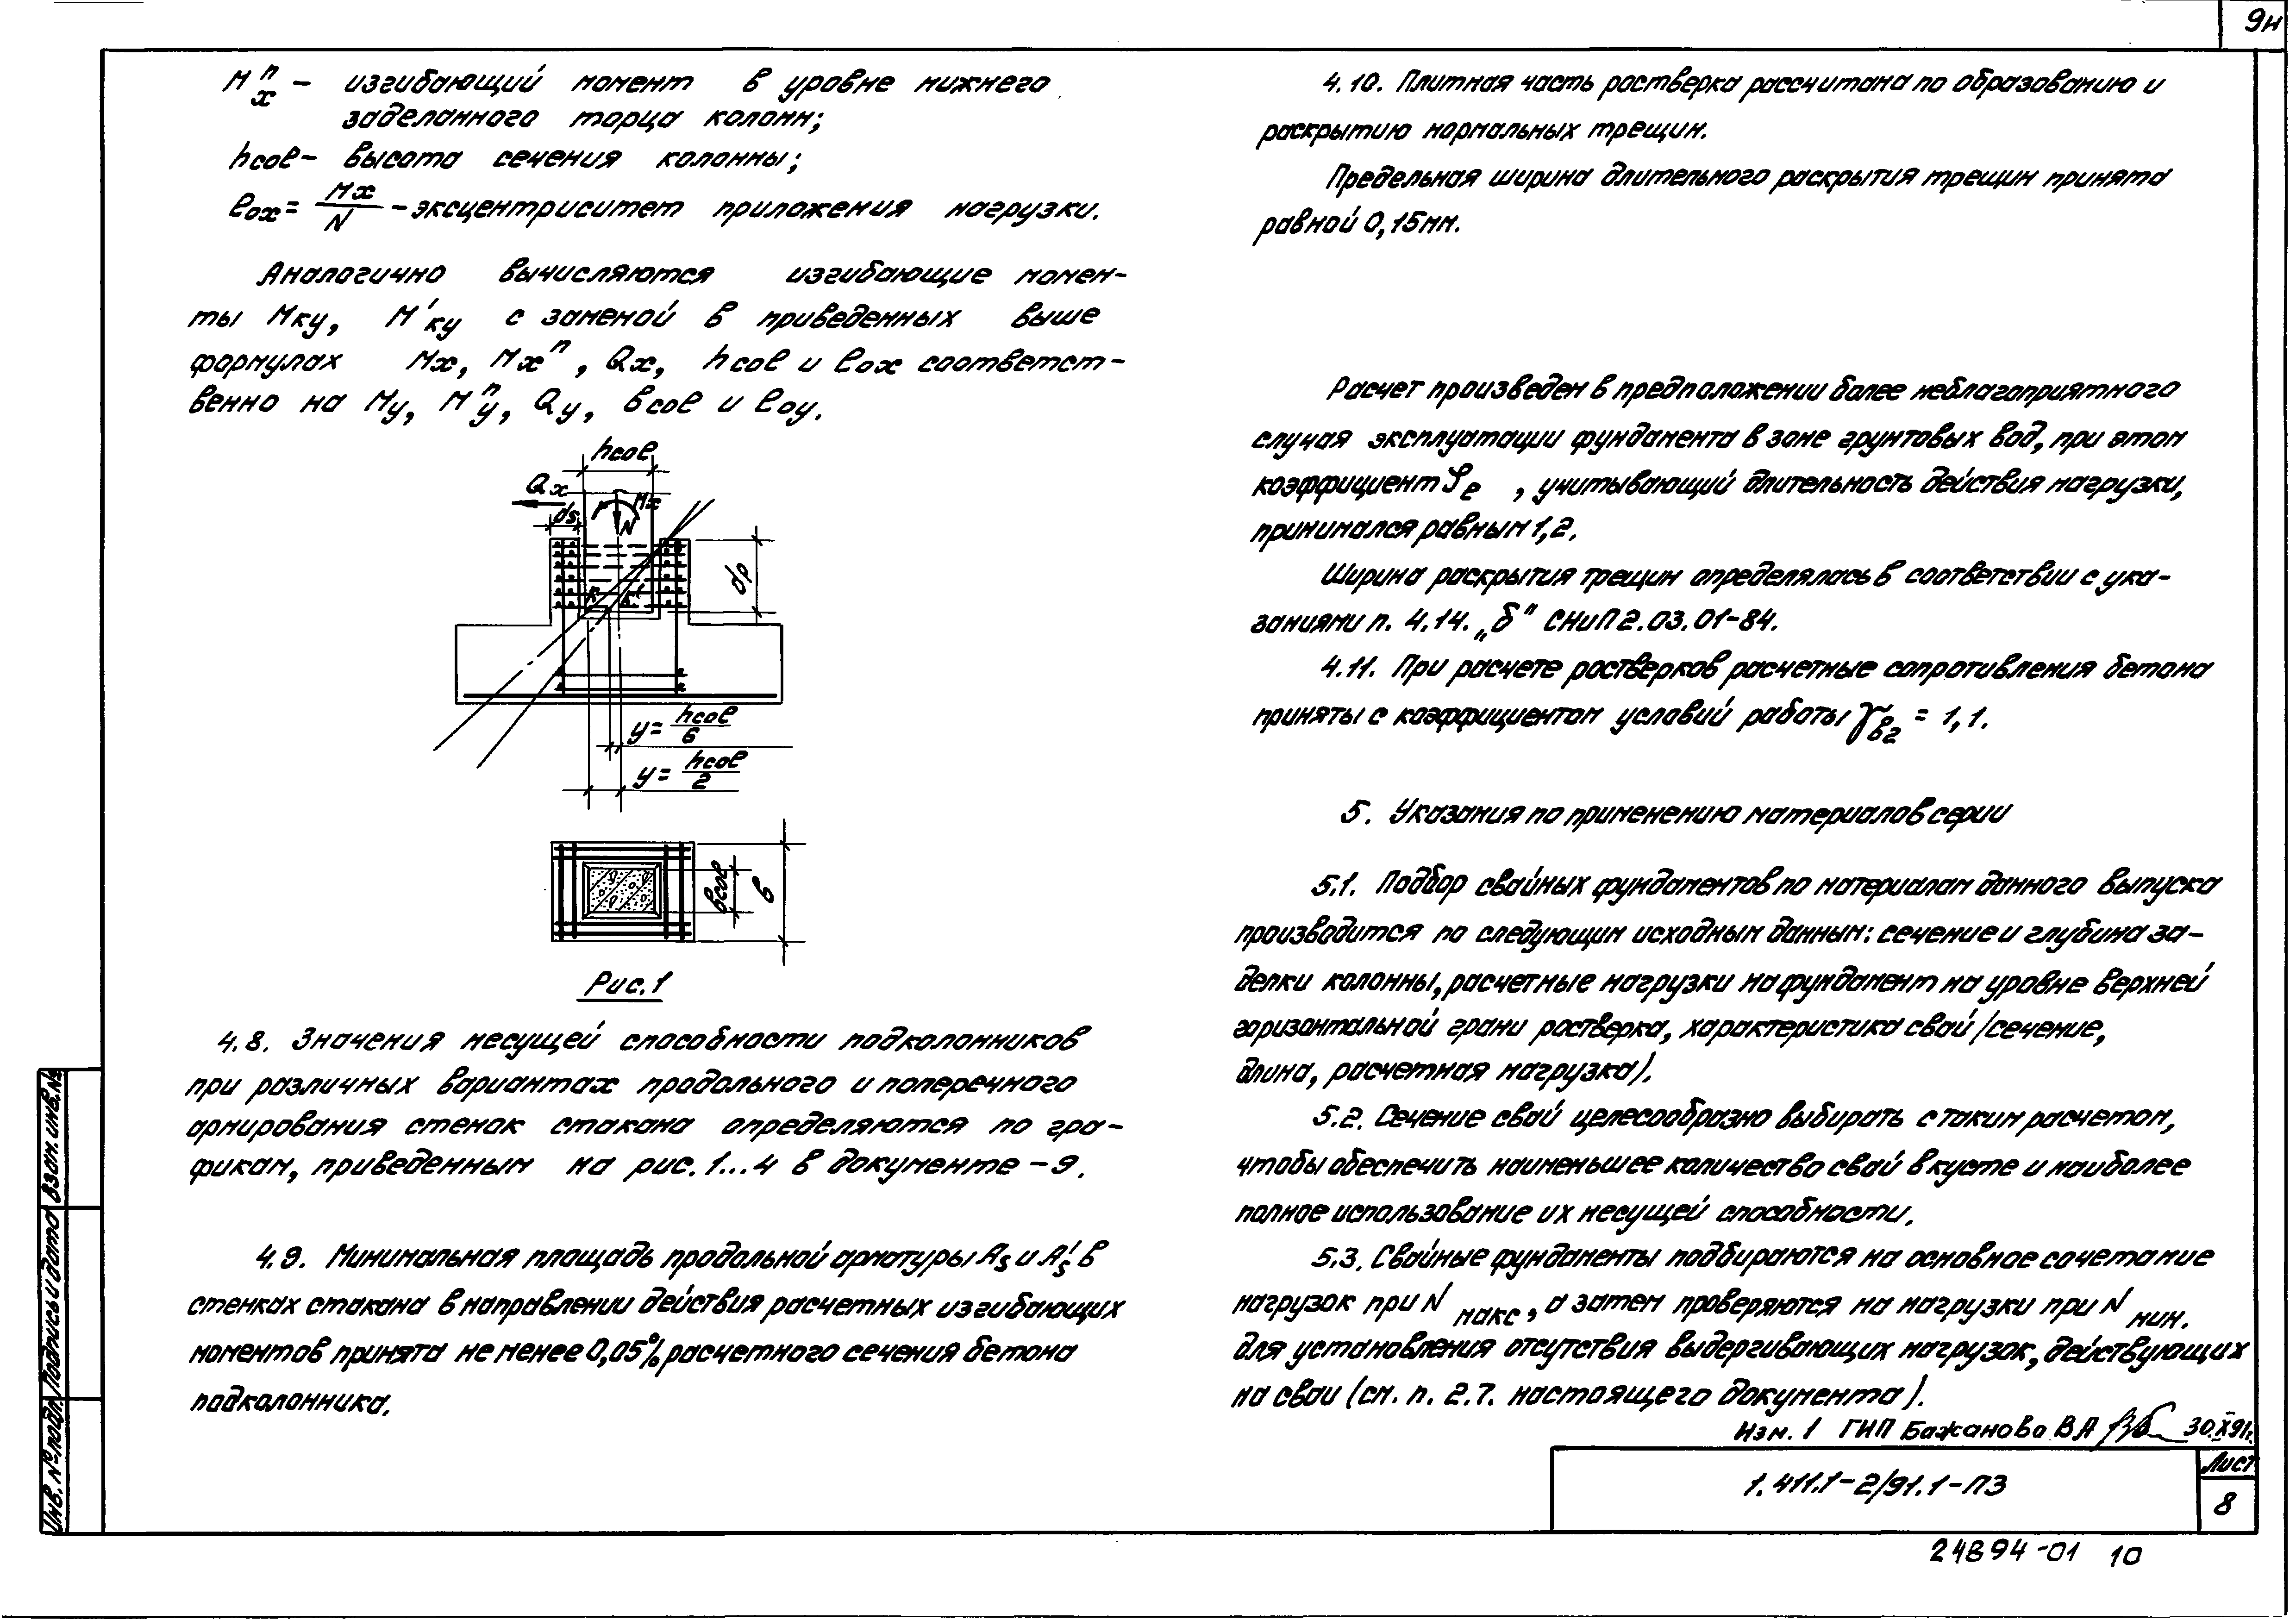 9н
Mxⁿ – изгибающий момент в уровне нижнего
заделанного торца колонн;
hcol – высота сечения колонны;
eox = Mx/N – эксцентриситет приложения нагрузки.
Аналогично вычисляются изгибающие момен-
ты Mкy, M'кy с заменой в приведенных выше
формулах Mx, Mxⁿ, Qx, hcol и eox соответст-
венно на My, Myⁿ, Qy, bcol и eoy.
hcol
Qx
Mx
ds
N
dp
K K'
y = hcol/6
y = hcol/2
bcol
b
Рис. 1
4.8. Значения несущей способности подколонников
при различных вариантах продольного и поперечного
армирования стенок стакана определяются по гра-
фикам, приведенным на рис. 1...4 в документе -9.
4.9. Минимальная площадь продольной арматуры As и A's в
стенках стакана в направлении действия расчетных изгибающих
моментов принята не менее 0,05% расчетного сечения бетона
подколонника.
4.10. Плитная часть ростверка рассчитана по образованию и
раскрытию нормальных трещин.
Предельная ширина длительного раскрытия трещин принята
равной 0,15мм.
Расчет произведен в предположении более неблагоприятного
случая эксплуатации фундамента в зоне грунтовых вод, при этом
коэффициент φe , учитывающий длительность действия нагрузки,
принимался равным 1,2.
Ширина раскрытия трещин определялась в соответствии с ука-
заниями п. 4.14. „б" СНиП 2.03.01-84.
4.11. При расчете ростверков расчетные сопротивления бетона
приняты с коэффициентом условий работы γв2 = 1,1.
5. Указания по применению материалов серии
5.1. Подбор свайных фундаментов по материалам данного выпуска
производится по следующим исходным данным: сечение и глубина за-
делки колонны, расчетные нагрузки на фундамент на уровне верхней
горизонтальной грани ростверка, характеристика свай /сечение,
длина, расчетная нагрузка/.
5.2. Сечение свай целесообразно выбирать с таким расчетом,
чтобы обеспечить наименьшее количество свай в кусте и наиболее
полное использование их несущей способности.
5.3. Свайные фундаменты подбираются на основное сочетание
нагрузок при N макс, а затем проверяются на нагрузки при N мин.
для установления отсутствия выдергивающих нагрузок, действующих
на сваи (см. п. 2.7. настоящего документа).
Изм. 1 ГИП Бажанова В.А 30.X91г.
1.411.1-2/91.1-ПЗ
Лист
8
24894-01 10
Взам. инв. №
Подпись и дата
Инв. № подл.